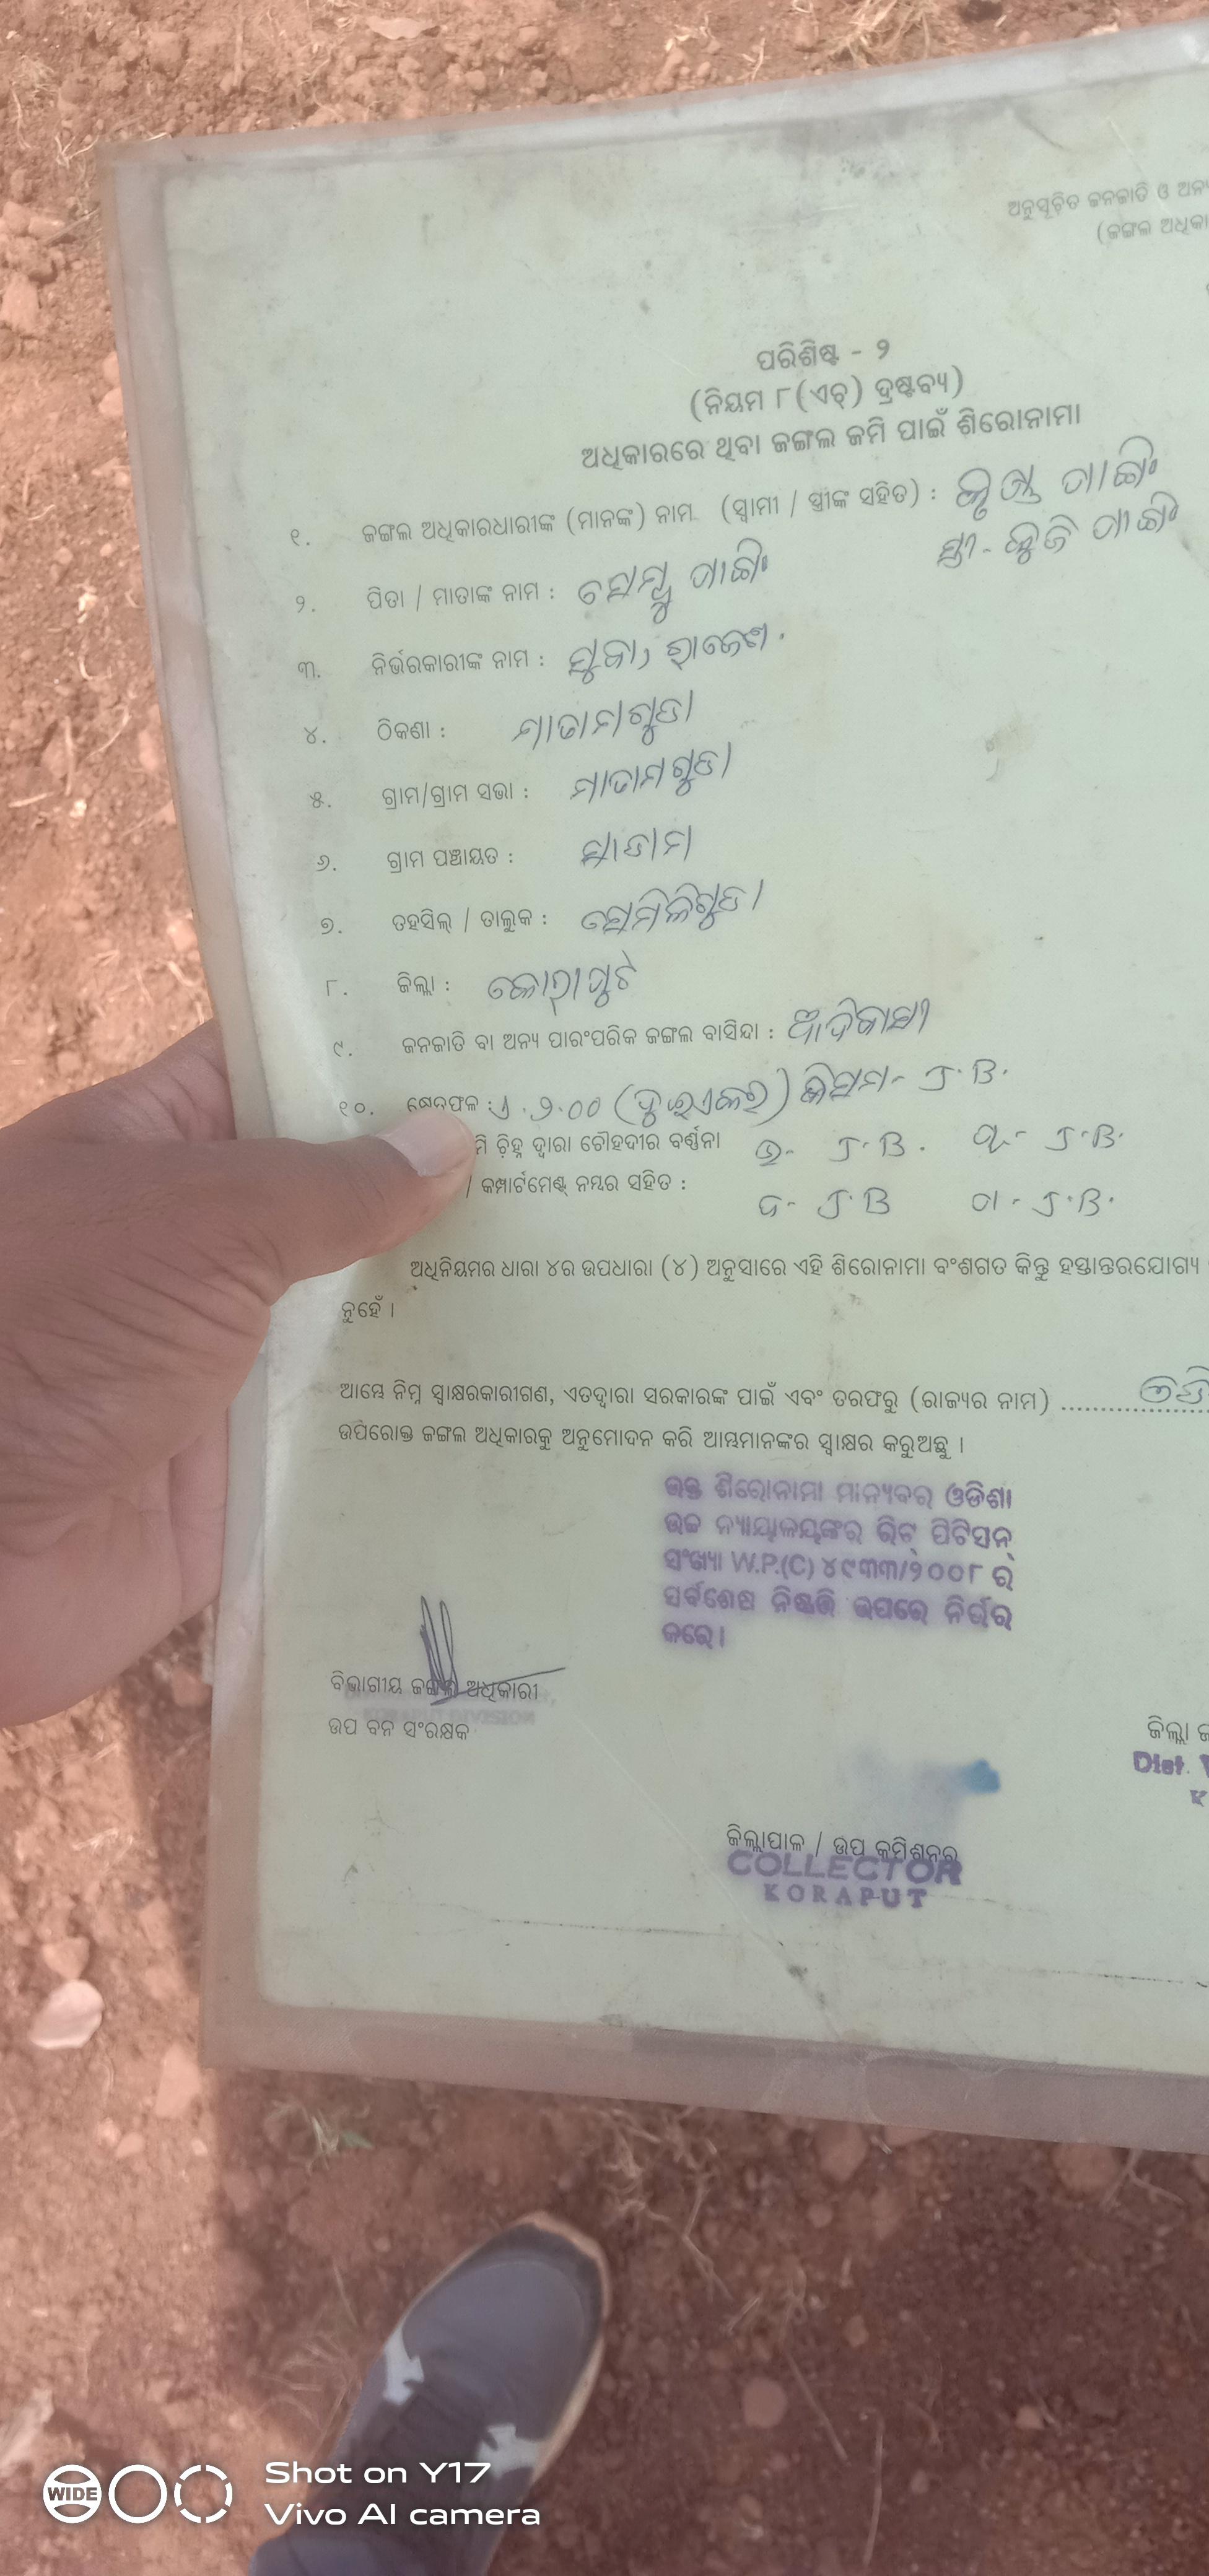 ଅନୁସୂଚିତ ଜନଜାତି ଓ ଅନ୍ୟ
(ଜଙ୍ଗଲ ଅଧିକା
ପରିଶିଷ୍ଟ - ୨
(ନିୟମ ୮(ଏଚ୍) ଦ୍ରଷ୍ଟବ୍ୟ)
ଅଧିକାରରେ ଥିବା ଜଙ୍ଗଲ ଜମି ପାଇଁ ଶିରୋନାମା
୧. ଜଙ୍ଗଲ ଅଧିକାରଧାରୀଙ୍କ (ମାନଙ୍କ) ନାମ (ସ୍ୱାମୀ / ସ୍ତ୍ରୀଙ୍କ ସହିତ) :
୨. ପିତା / ମାତାଙ୍କ ନାମ :
୩. ନିର୍ଭରକାରୀଙ୍କ ନାମ :
୪. ଠିକଣା :
୫. ଗ୍ରାମ/ଗ୍ରାମ ସଭା :
୬. ଗ୍ରାମ ପଞ୍ଚାୟତ :
୭. ତହସିଲ୍ / ତାଲୁକ : ସେମିଳିଗୁଡା
୮. ଜିଲ୍ଲା : କୋରାପୁଟ
୯. ଜନଜାତି ବା ଅନ୍ୟ ପାରଂପରିକ ଜଙ୍ଗଲ ବାସିନ୍ଦା : ଆଦିବାସୀ
୧୦. କ୍ଷେତ୍ରଫଳ : ୨.୦୦ (ଦୁଇଏକର) କିସମ- J.B.
ମି ଚିହ୍ନ ଦ୍ୱାରା ଚୌହଦୀର ବର୍ଣ୍ଣନା ଉ- J.B. ପୂ- J.B.
/ କମ୍ପାର୍ଟମେଣ୍ଟ୍ ନମ୍ବର ସହିତ : ଦ- J.B ପ- J.B.
ଅଧିନିୟମର ଧାରା ୪ର ଉପଧାରା (୪) ଅନୁସାରେ ଏହି ଶିରୋନାମା ବଂଶଗତ କିନ୍ତୁ ହସ୍ତାନ୍ତରଯୋଗ୍ୟ
ନୁହେଁ ।
ଆମ୍ଭେ ନିମ୍ନ ସ୍ୱାକ୍ଷରକାରୀଗଣ, ଏତଦ୍ୱାରା ସରକାରଙ୍କ ପାଇଁ ଏବଂ ତରଫରୁ (ରାଜ୍ୟର ନାମ)
ଉପରୋକ୍ତ ଜଙ୍ଗଲ ଅଧିକାରକୁ ଅନୁମୋଦନ କରି ଆମ୍ଭମାନଙ୍କର ସ୍ୱାକ୍ଷର କରୁଅଛୁ ।
ଉକ୍ତ ଶିରୋନାମା ମାନ୍ୟବର ଓଡିଶା
ଉଚ୍ଚ ନ୍ୟାୟାଳୟଙ୍କର ରିଟ୍ ପିଟିସନ୍
ସଂଖ୍ୟା W.P.(C) ୪୯୩୩/୨୦୦୮ ର
ସର୍ବଶେଷ ନିଷ୍ପତ୍ତି ଉପରେ ନିର୍ଭର
କରେ।
ବିଭାଗୀୟ ଜଙ୍ଗଲ ଅଧିକାରୀ
ଉପ ବନ ସଂରକ୍ଷକ
ଜିଲ୍ଲା
Dist.
K
ଜିଲ୍ଲାପାଳ / ଉପ କମିଶନର
COLLECTOR
KORAPUT
WIDE
Shot on Y17
Vivo AI camera